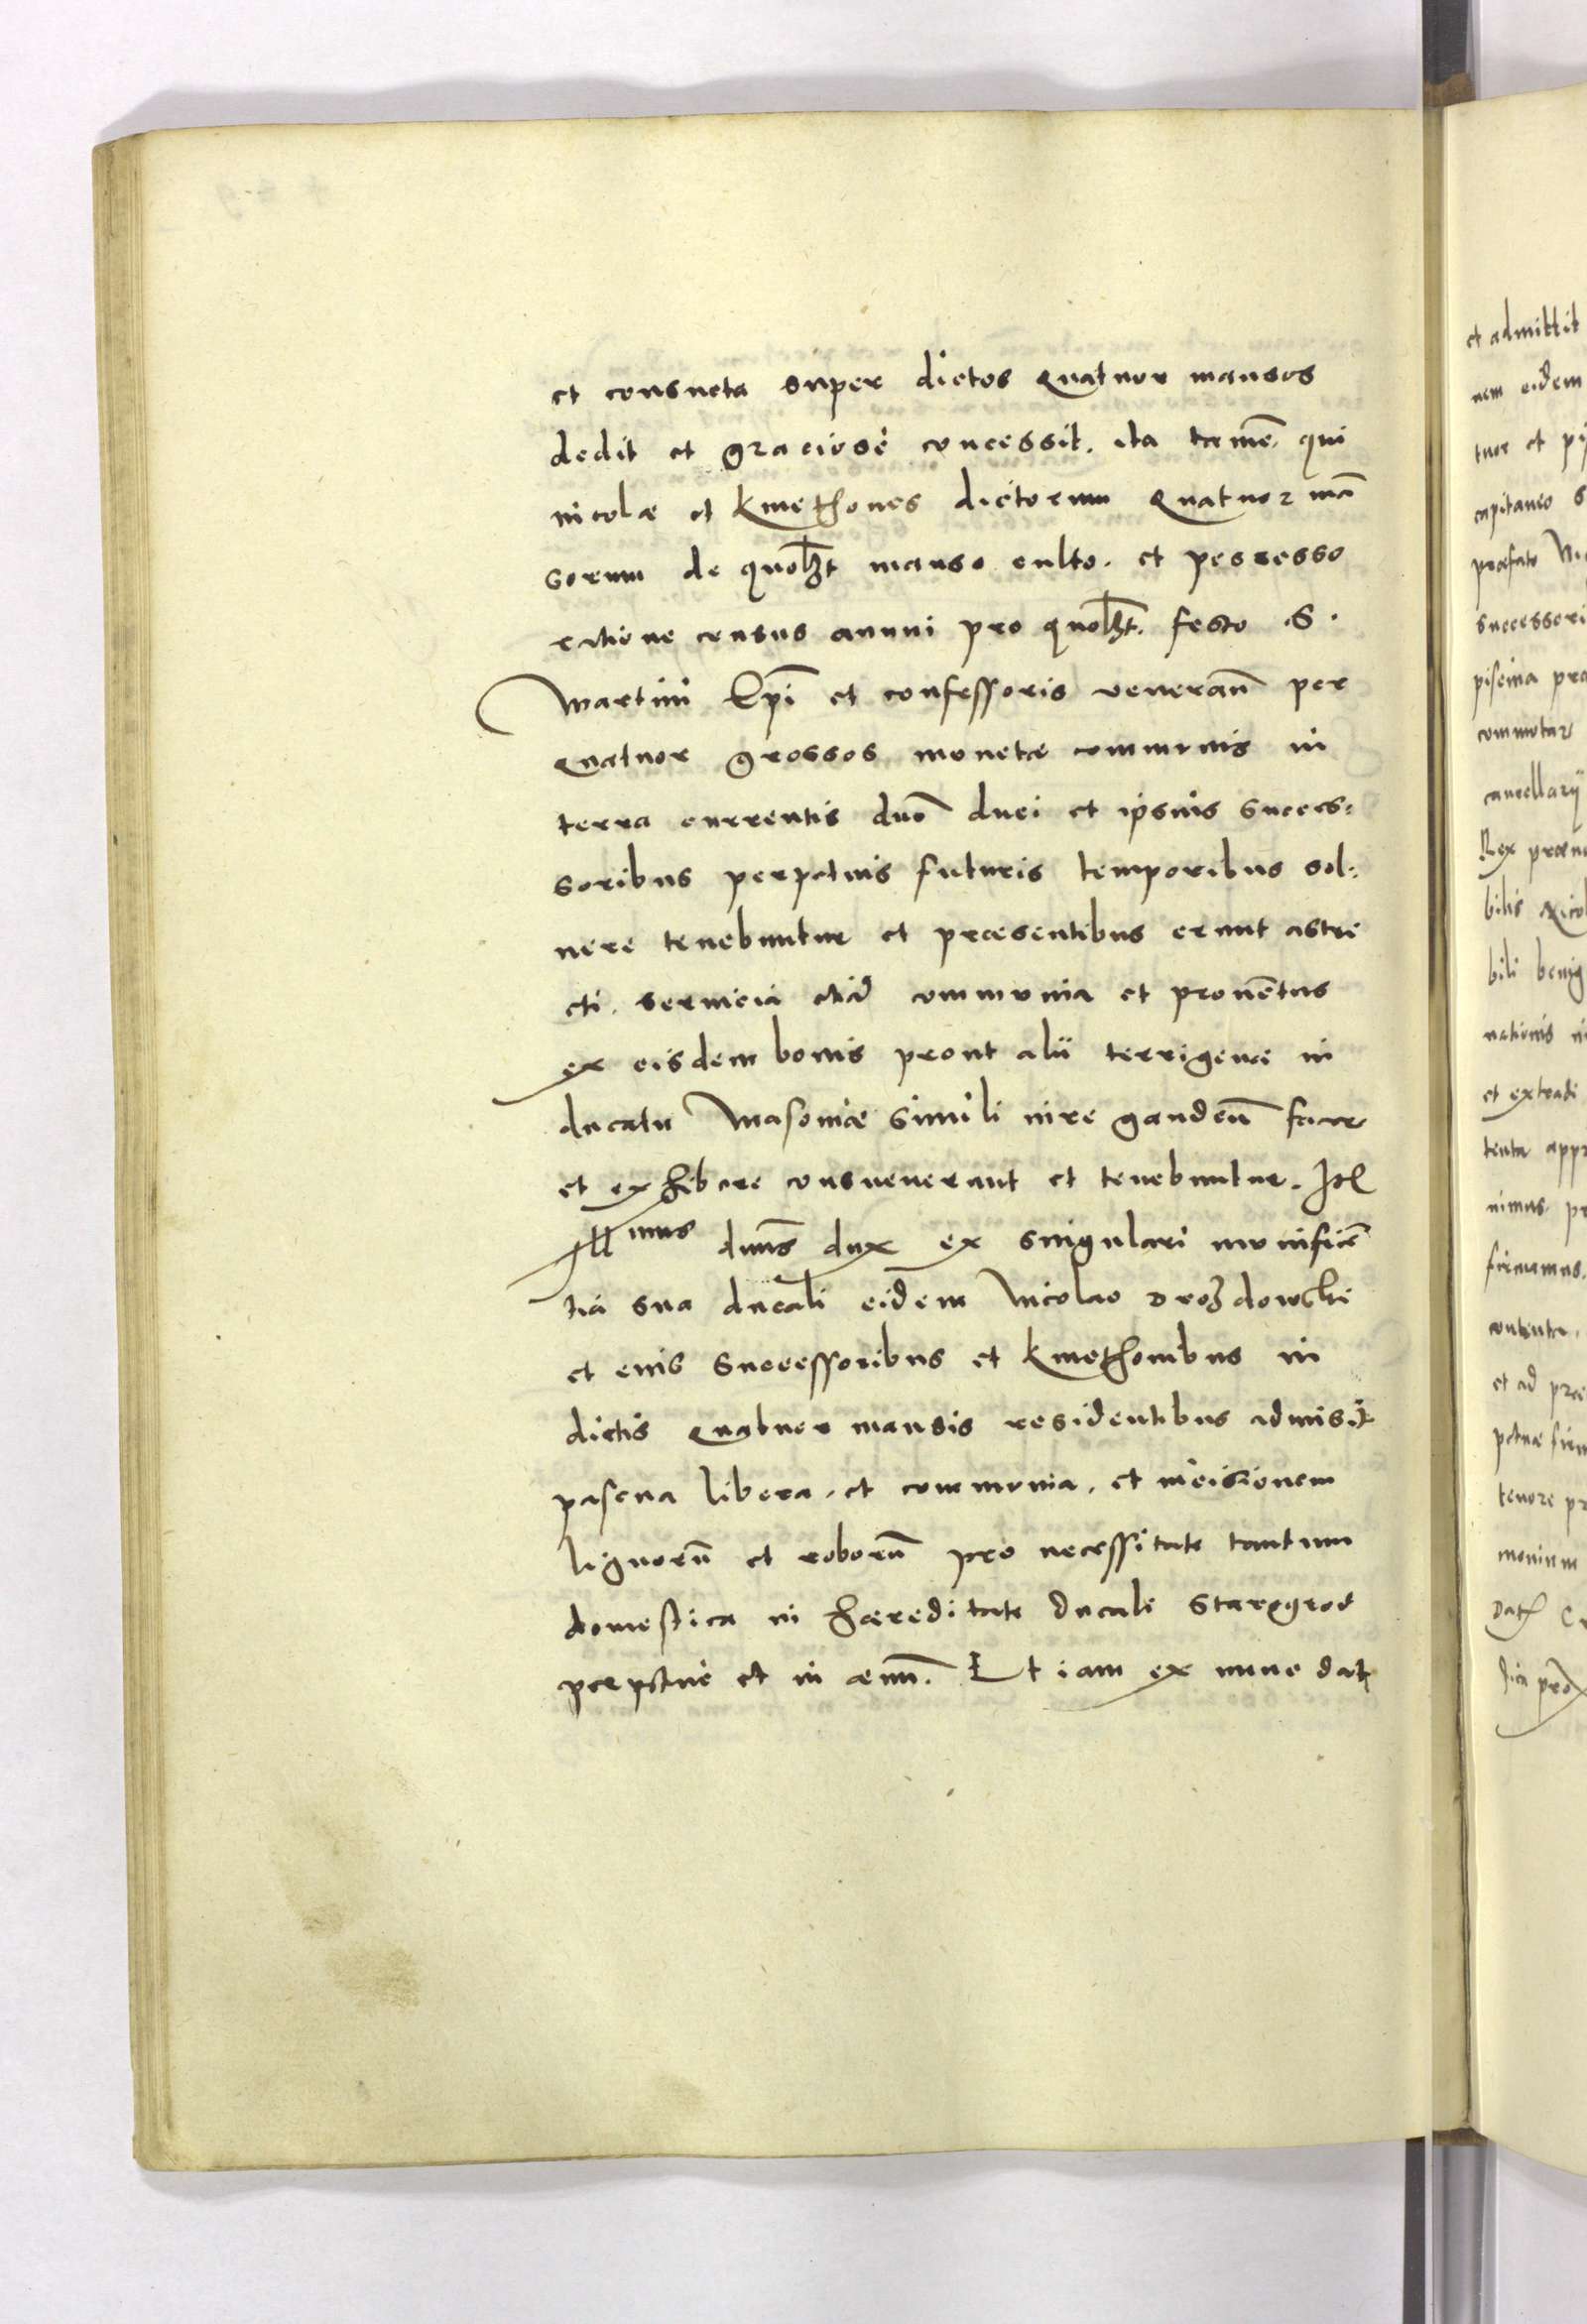 et consueta super dictos quatuor mansos
dedit et graciose concessit. ita tamē. qui
incolæ et kmethones dictorum quatuor mā
sorum de quolꝫt manso culto. et possesso
ratione census annui pro quolꝫt. festo S.
Martini Ep̄i et confessoris venerañ per
quatuor grossos monetæ communis in
terra currentis dnō duci et ipsius succes:
soribus perpetuis futuris temporibus sol:
uere tenebuntur et præsentibus erunt astri
cti. seruicia etiā communia et prouētus
ex eisdem bonis prout alii terrigenæ in
ducatu Masouiæ simili iure gaudeñ facere
et exhibere consueuerunt et tenebuntur. Itē
Illmus dnūs dux ex singulari munificē
tia sua ducali eidem Nicolao Droʒdowski
et eius successoribus et kmethonibus in
dictis quatuor mansis residentibus admisit
pascua libera. et communia. et incisionem
lignorū et roborū pro necessitate tantum
domestica in hæreditate ducali Starogrod
perpetue et in æuū. Et iam ex nunc dat
et admittit
nem eidem
tuor et pi
capitaneo S
præfato Ni
successori
piscina pra
commutar
cancellarij
Rex præn
bilis Nicol
bili benig
nationis
et extradi
tenta appr
nimus. pr
firmamus.
contenta.
et ad præ
petuæ firm
tenore pr
monium
Dat